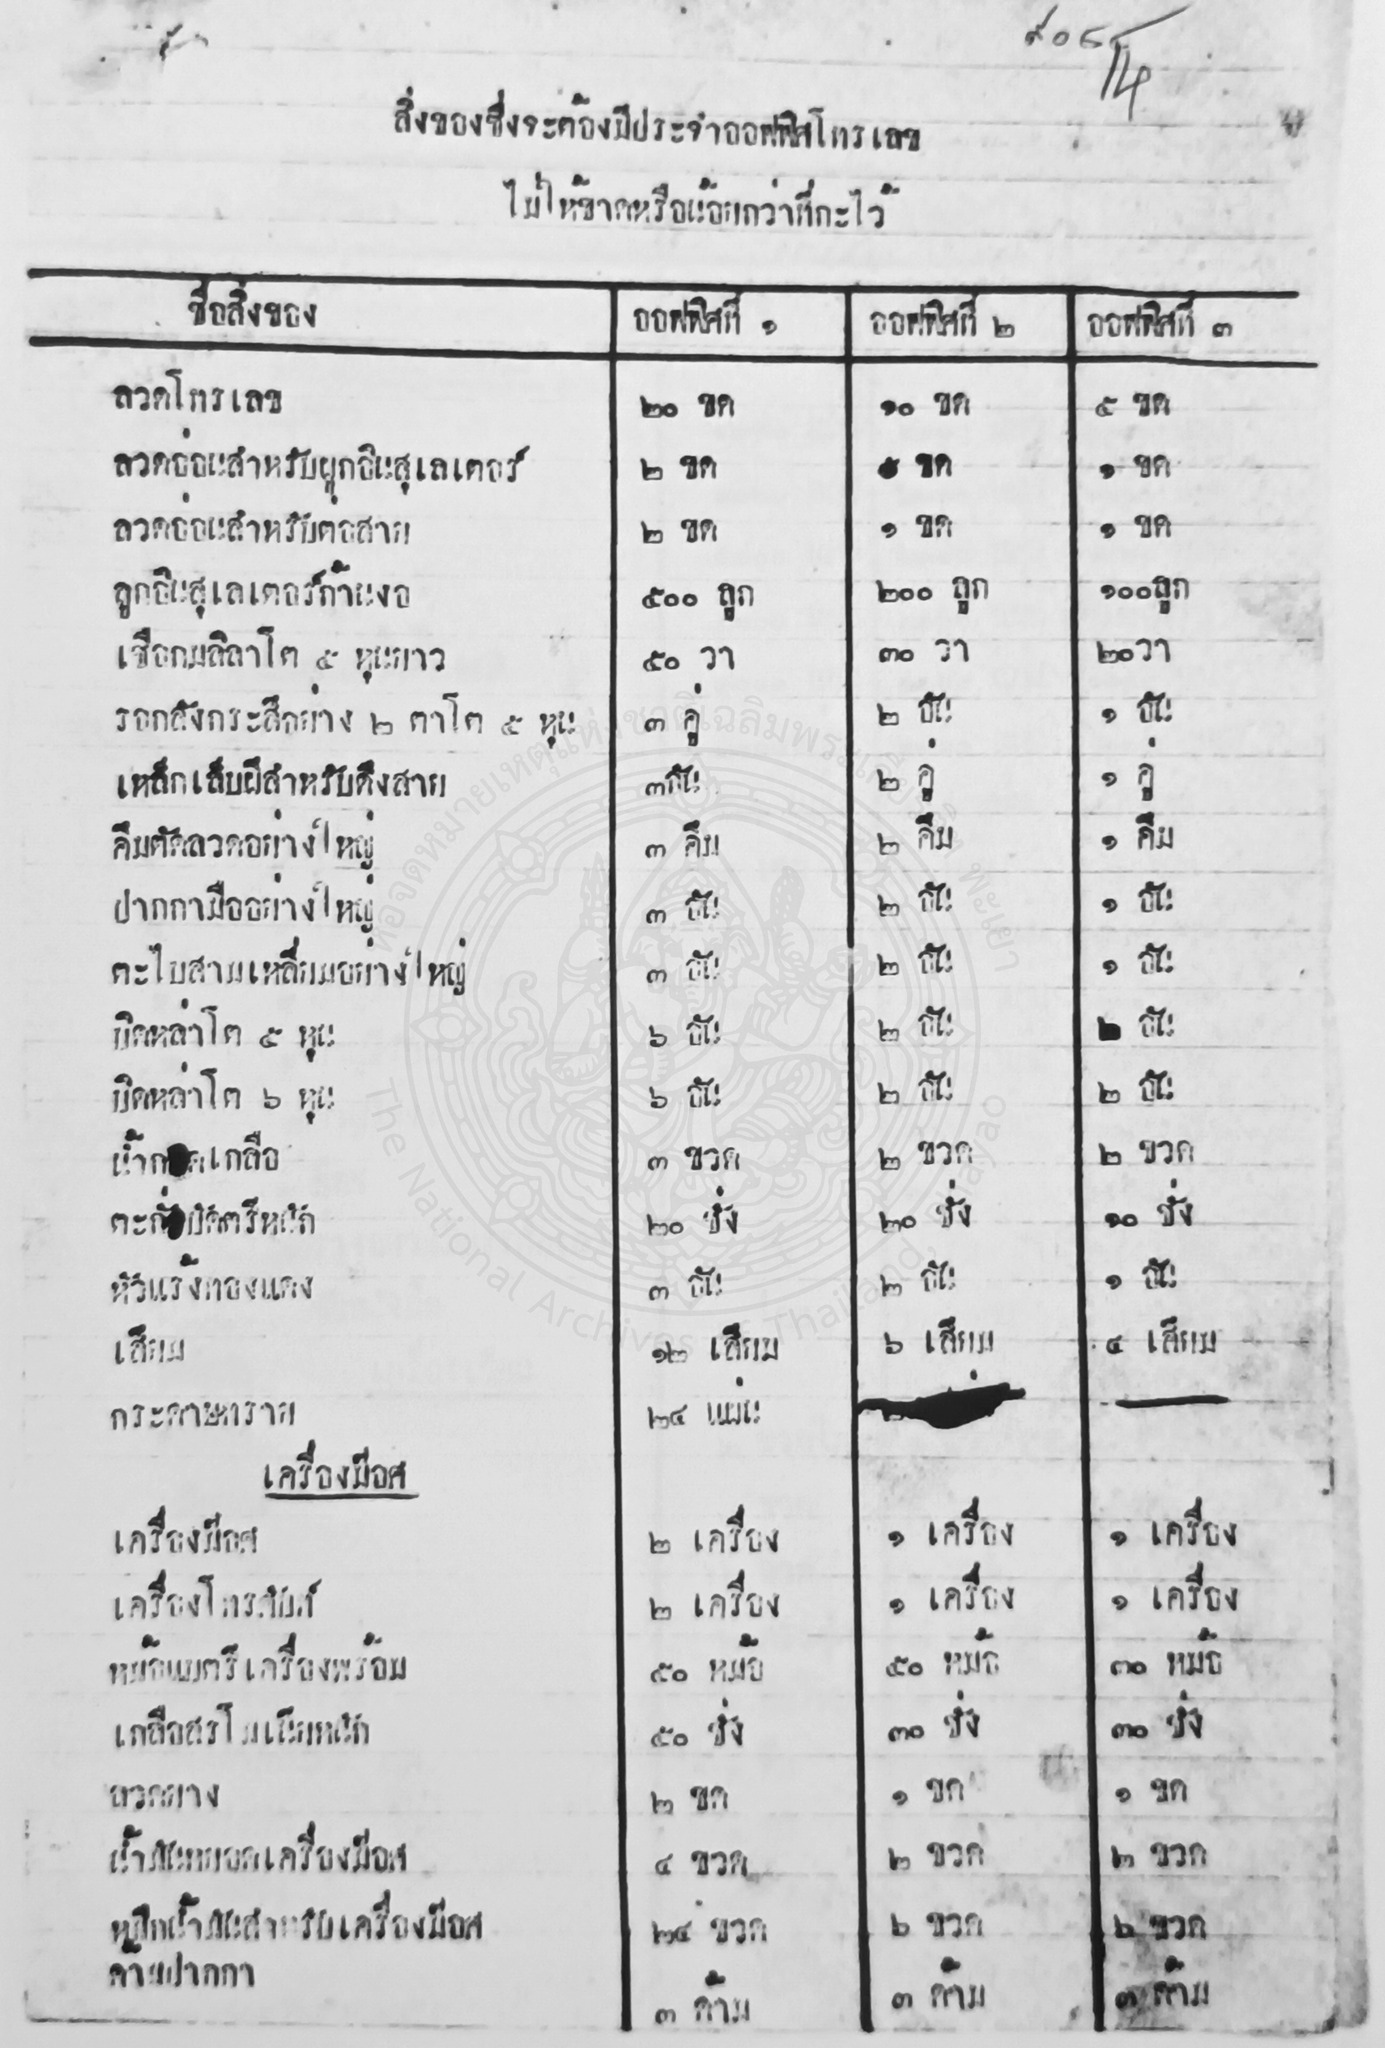 ๙๐๘
สิ่งของซึ่งจะต้องมีประจำออฟฟิศโทรเลข
ไม่ให้ขาดหรือน้อยกว่าที่กะไว้
ชื่อสิ่งของ ออฟฟิศที่ ๑ ออฟฟิศที่ ๒ ออฟฟิศที่ ๓
ลวดโทรเลข ๒๐ ขด ๑๐ ขด ๕ ขด
ลวดอ่อนสำหรับผูกอินสุเลเตอร์ ๒ ขด ขด ๑ ขด
ลวดอ่อนสำหรับต่อสาย ๒ ขด ๑ ขด ๑ ขด
ลูกอินสุเลเตอร์ก้านงอ ๕๐๐ ลูก ๒๐๐ ลูก ๑๐๐ลูก
เชือกมลิลาโต ๕ หุนยาว ๕๐ วา ๓๐ วา ๒๐วา
รอกสังกระสีอย่าง ๒ ตาโต ๕ หุน ๓ คู่ ๒ อัน ๑ อัน
เหล็กเล็บผีสำหรับดึงสาย ๓อัน ๒ คู่ ๑ คู่
คีมตัดลวดอย่างใหญ่ ๓ คีม ๒ คีม ๑ คีม
ปากกามืออย่างใหญ่ ๓ อัน ๒ อัน ๑ อัน
ตะไบสามเหลี่ยมอย่างใหญ่ ๓ อัน ๒ อัน ๑ อัน
บิดหล่าโต ๕ หุน ๖ อัน ๒ อัน ๒ อัน
บิดหล่าโต ๖ หุน ๖ อัน ๒ อัน ๒ อัน
เกลือ ๓ ขวด ๒ ขวด ๒ ขวด
ตะกั่วบัดตรีหนัก ๒๐ ชั่ง ๒๐ ชั่ง ๑๐ ชั่ง
หัวแร้งทองแดง ๓ อัน ๒ อัน ๑ อัน
เสียม ๑๒ เสียม ๖ เสียม ๔ เสียม
กระดาษทราย ๒๔ แผ่น
เครื่องม๊อศ
เครื่องม๊อศ ๒ เครื่อง ๑ เครื่อง ๑ เครื่อง
เครื่องโทรศัพท์ ๒ เครื่อง ๑ เครื่อง ๑ เครื่อง
หม้อแบตรีเครื่องพร้อม ๕๐ หม้อ ๕๐ หม้อ ๓๐ หม้อ
เกลือสรโมเนียหนัก ๕๐ ชั่ง ๓๐ ชั่ง ๓๐ ชั่ง
ลวดยาง ๒ ขด ๑ ขด ๑ ขด
น้ำมันหยอดเครื่องม๊อศ ๔ ขวด ๒ ขวด ๒ ขวด
หมึกน้ำมันสำหรับเครื่องม๊อศ ๒๔ ขวด ๖ ขวด ๖ ขวด
ด้ามปากกา ๓ ด้าม ๓ ด้าม ๓ ด้าม
หอจดหมายเหตุแห่งชาติเฉลิมพระเกียรติ พะเยา
The National Archives of Thailand, Phayao